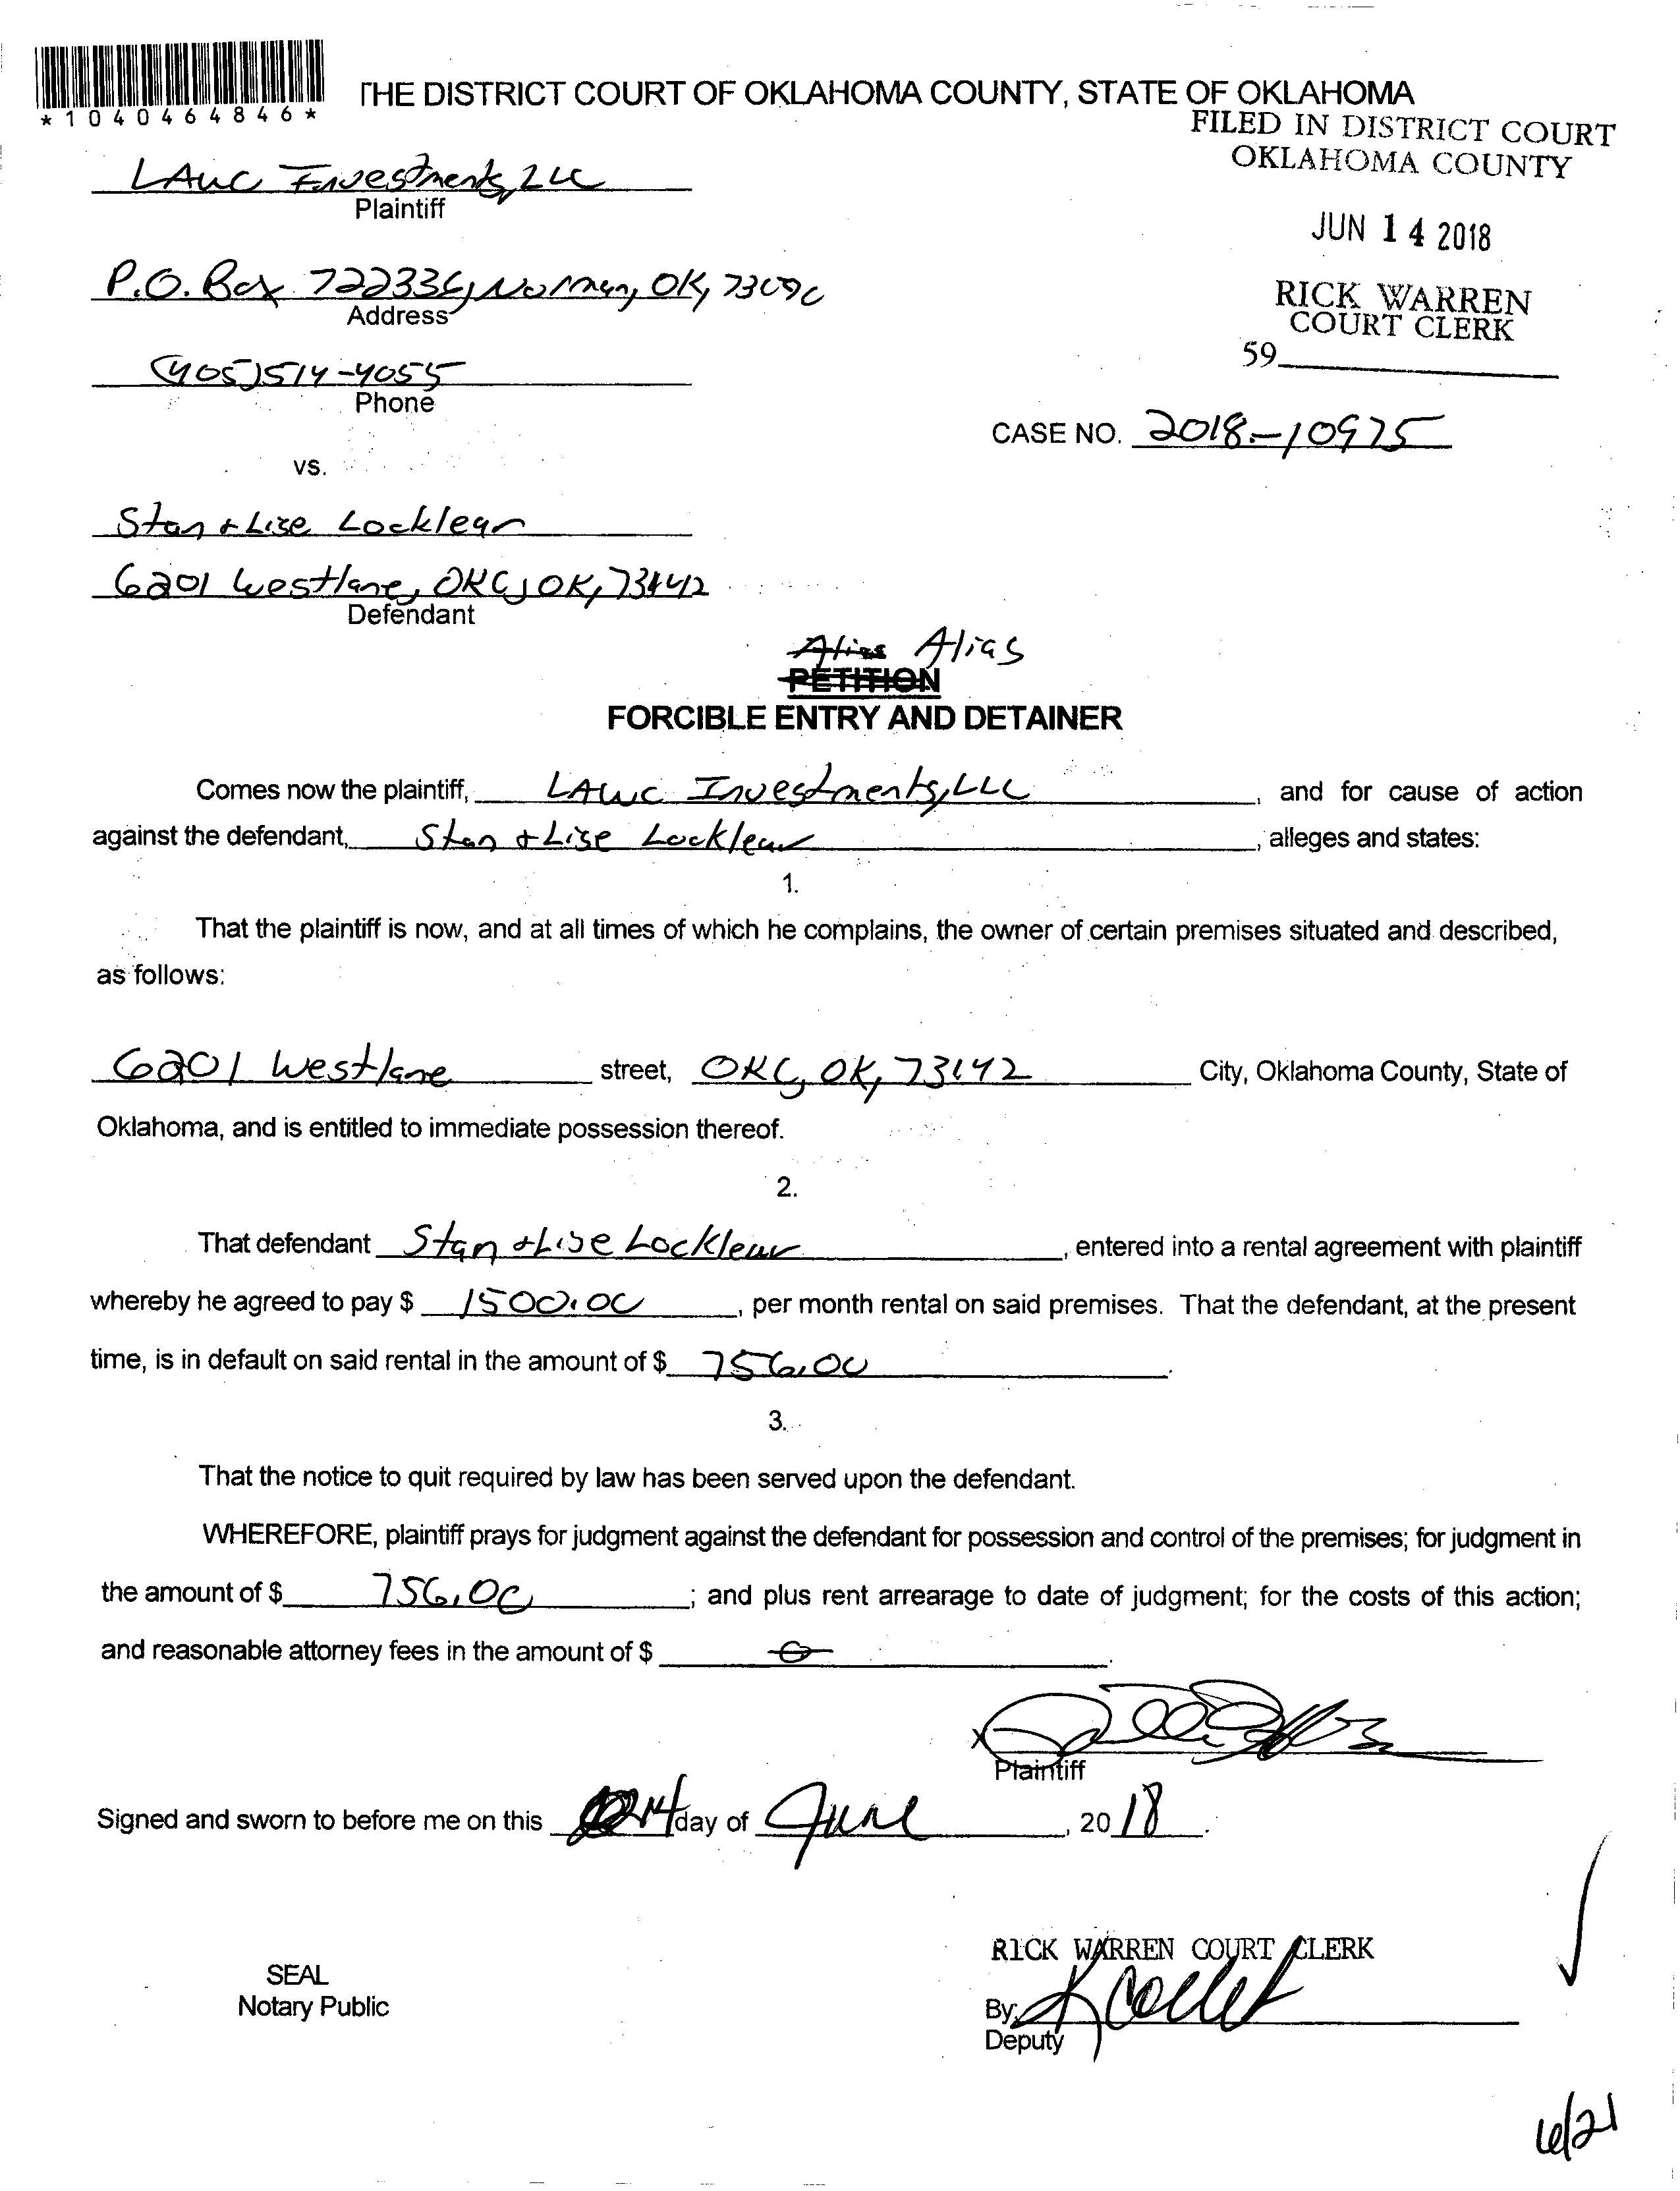 *1040464846*
THE DISTRICT COURT OF OKLAHOMA COUNTY, STATE OF OKLAHOMA
FILED IN DISTRICT COURT
OKLAHOMA COUNTY
LAWC Investments, LLC
Plaintiff
JUN 14 2018
P.O. Box 722336, Norman, OK, 73070
Address
RICK WARREN
COURT CLERK
59
(405)514-4055
Phone
CASE NO. 2018-10975
vs.
Stan + Lise Locklear
6201 Westlane, OKC, OK, 73142
Defendant
Alias Alias
PETITION
FORCIBLE ENTRY AND DETAINER
Comes now the plaintiff, LAWC Investments, LLC, and for cause of action
against the defendant, Stan + Lise Locklear, alleges and states:
1.
That the plaintiff is now, and at all times of which he complains, the owner of certain premises situated and described,
as follows:
6201 Westlane street, OKC, OK, 73142 City, Oklahoma County, State of
Oklahoma, and is entitled to immediate possession thereof.
2.
That defendant Stan + Lise Locklear, entered into a rental agreement with plaintiff
whereby he agreed to pay $ 1500.00, per month rental on said premises. That the defendant, at the present
time, is in default on said rental in the amount of $ 756.00.
3.
That the notice to quit required by law has been served upon the defendant.
WHEREFORE, plaintiff prays for judgment against the defendant for possession and control of the premises; for judgment in
the amount of $ 756.00; and plus rent arrearage to date of judgment; for the costs of this action;
and reasonable attorney fees in the amount of $ 0.
X
Plaintiff
Signed and sworn to before me on this 14 day of June, 2018.
RICK WARREN COURT CLERK
SEAL
Notary Public
By:
Deputy
6/21